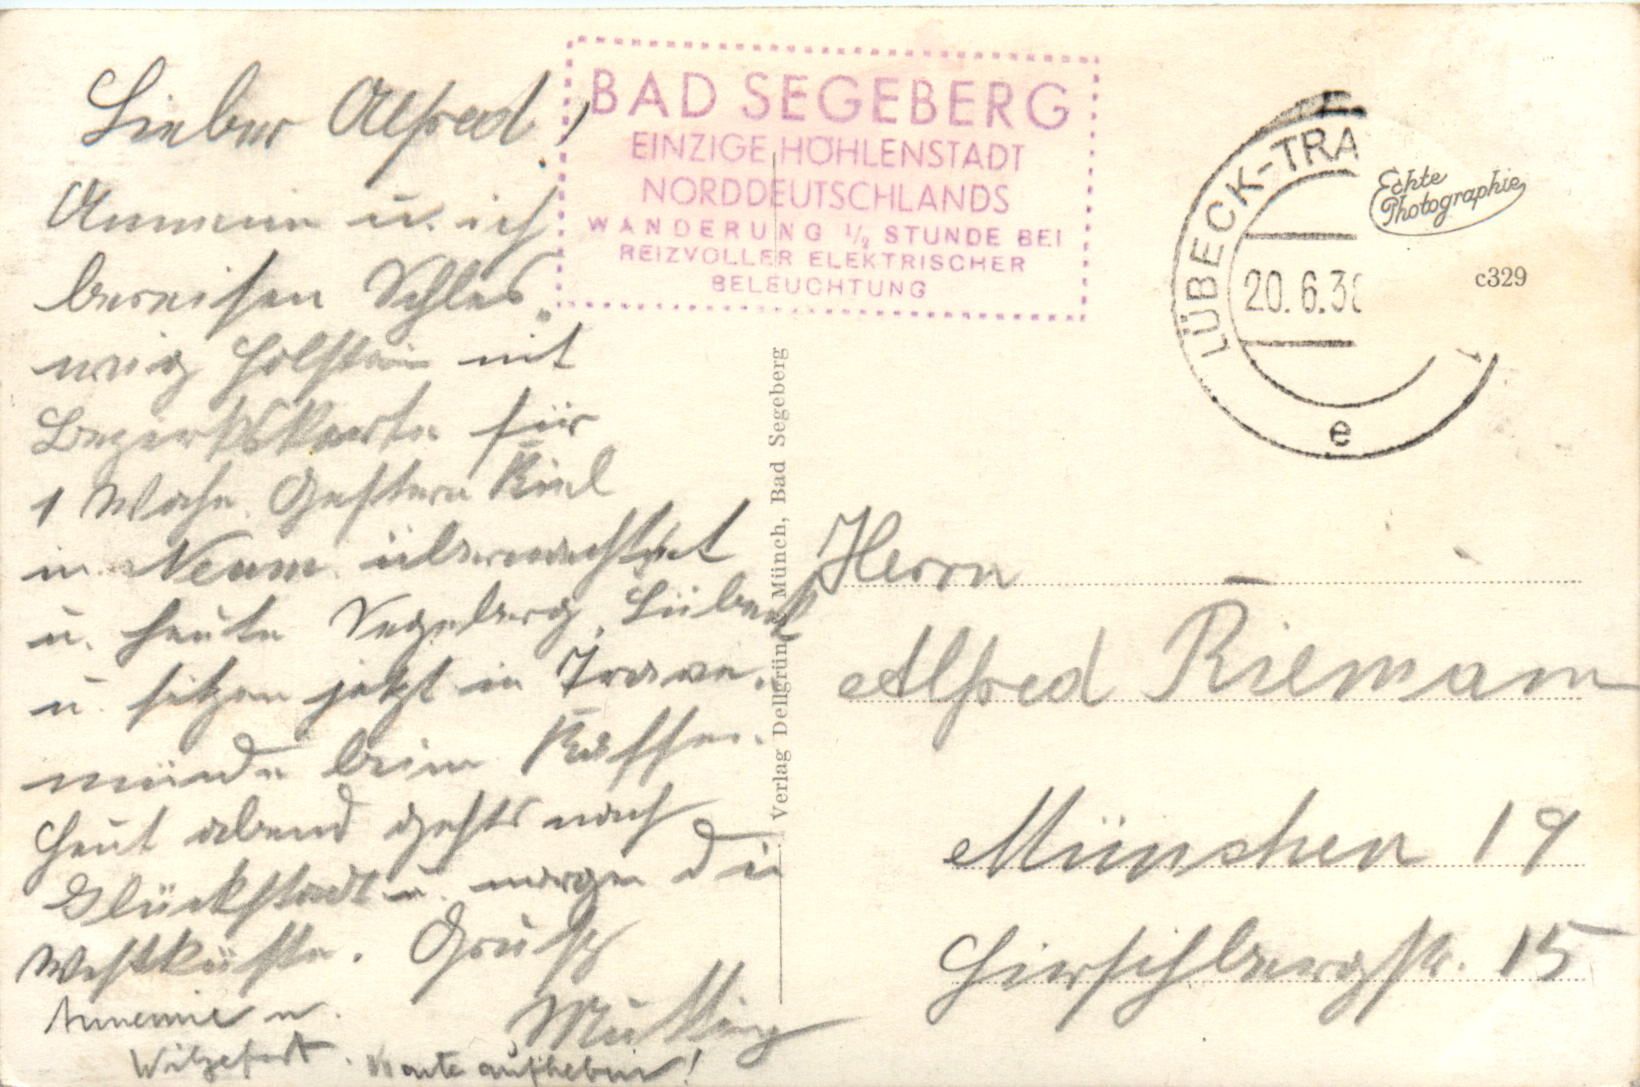 BAD SEGEBERG
EINZIGE HÖHLENSTADT
NORDDEUTSCHLANDS
WANDERUNG 1/2 STUNDE BEI
REIZVOLLER ELEKTRISCHER
BELEUCHTUNG
Lieber Alfred!
Annemie u. ich
bereisen Schles
wig Holstein mit
Bezirkskarte für
1 Woche. Gestern Kiel
in Neum. übernachtet
u. heute Segeberg, Lübeck
u. sitzen jetzt in Trave-
münde beim Kaffee.
Heut abend gehts nach
Glückstadt u. morgen die
Westküste. Gruß
Mutting
Annemie u.
Karte aufheben!
Verlag Dellgrün & Münch, Bad Segeberg
LÜBECK-TRA
20.6.38
e
Echte
Photographie
c329
Herrn
Alfred Riemann
München 19
Hirschbergstr. 15